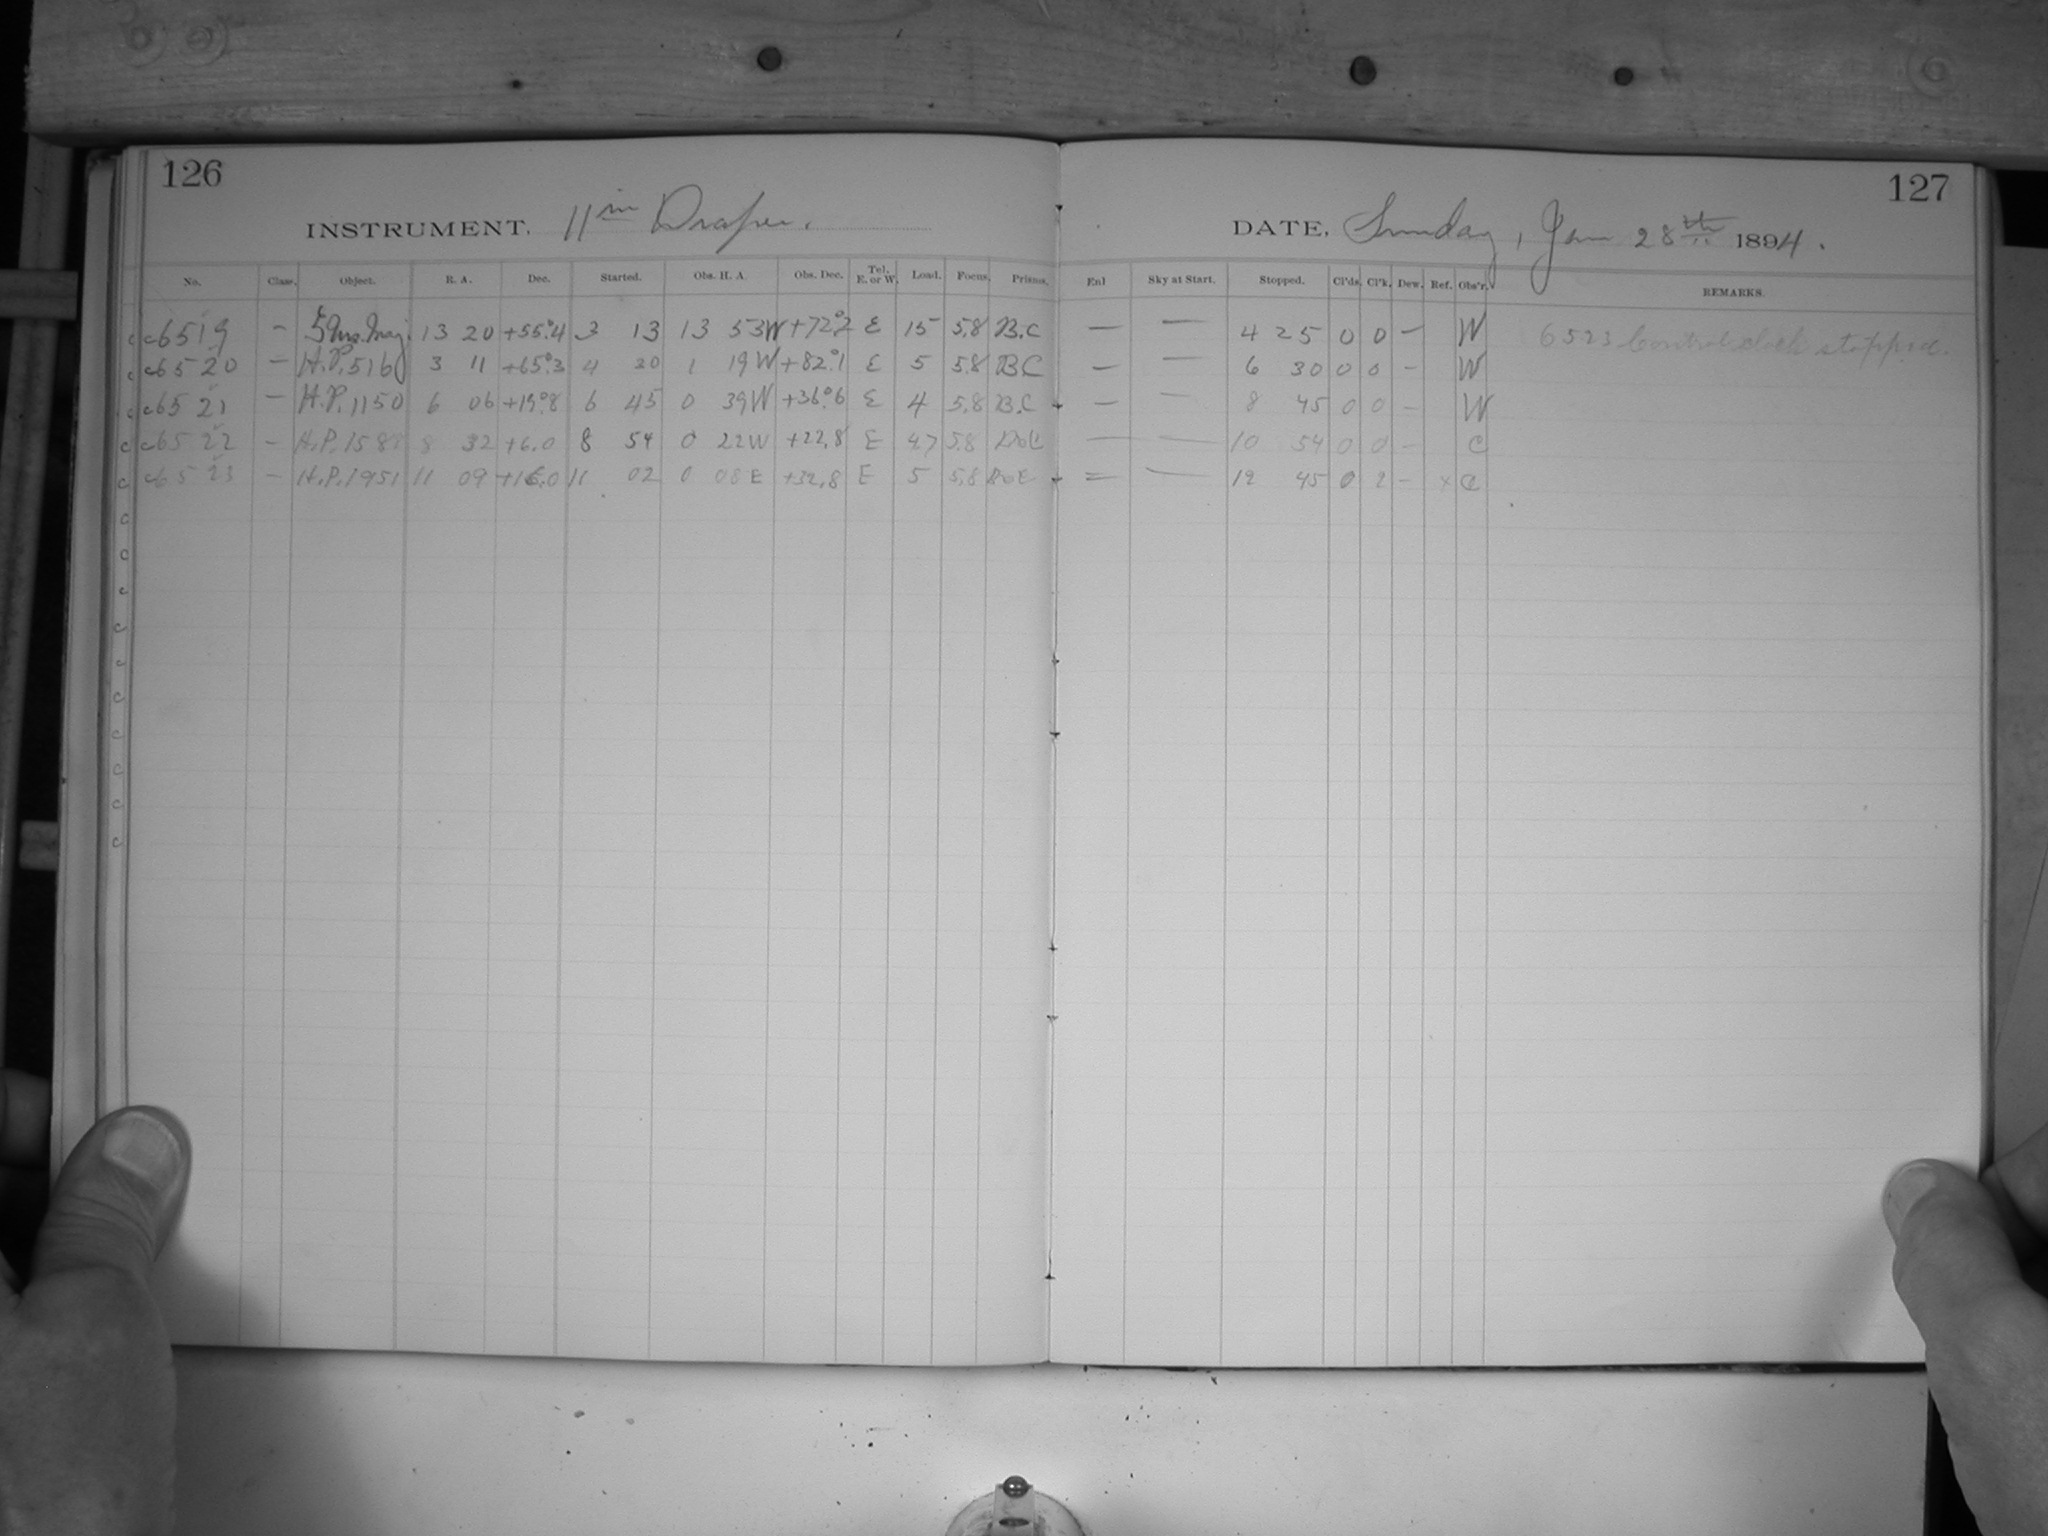 126
127
INSTRUMENT. 11in Draper.
DATE, Sunday, Jan 28th 1894.
No. Class. Object. R. A. Dec. Started. Obs. H. A. Obs. Dec. Tel. E. or W. Load. Focus. Prisms. Enl Sky at Start. Stopped. Cl'ds. Cl'k. Dew. Ref. Obs'r. REMARKS.
c c6519 — ζ Urs. Maj. 13 20 +55°.4 3 13 13 53W +72°.2 E 15 5.8 B.C — — 4 25 0 0 — W 6523 Control clock stopped.
c c6520 — H.P. 516 3 11 +65°.3 4 30 1 19W +82°.1 E 5 5.8 BC — — 6 30 0 0 — W
c c6521 — H.P. 1150 6 06 +19°.8 6 45 0 39W +36°.6 E 4 5.8 B.C — — 8 45 0 0 — W
c c6522 — H.P. 158 8 32 +6.0 8 54 0 22W +22.8 E 47 5.8 — — 10 54 0 0 — C
c c6523 — H.P. 1951 11 09 +16.0 11 02 0 08E +32.8 E 5 5.8 — — 12 45 0 2 — x C
c
c
c
c
c
c
c
c
c
c